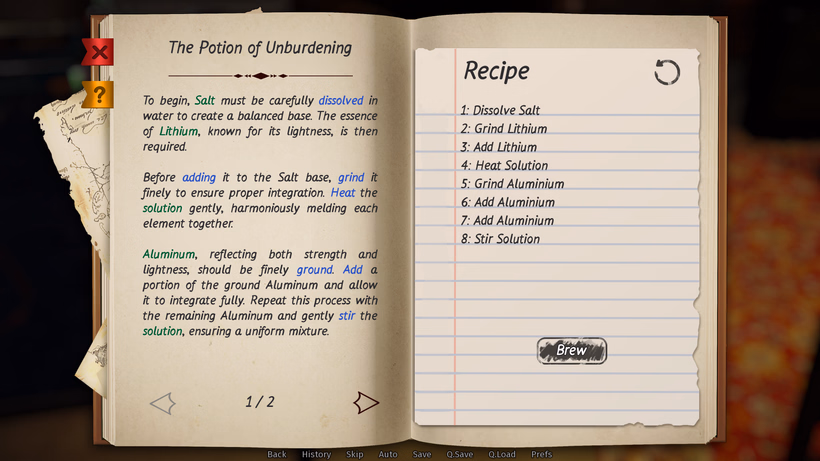 The Potion of Unburdening
To begin, Salt must be carefully dissolved in
water to create a balanced base. The essence
of Lithium, known for its lightness, is then
required.
Before adding it to the Salt base, grind it
finely to ensure proper integration. Heat the
solution gently, harmoniously melding each
element together.
Aluminum, reflecting both strength and
lightness, should be finely ground. Add a
portion of the ground Aluminum and allow
it to integrate fully. Repeat this process with
the remaining Aluminum and gently stir the
solution, ensuring a uniform mixture.
1 / 2
?
Recipe
1: Dissolve Salt
2: Grind Lithium
3: Add Lithium
4: Heat Solution
5: Grind Aluminium
6: Add Aluminium
7: Add Aluminium
8: Stir Solution
Brew
Back History Skip Auto Save Q.Save Q.Load Prefs